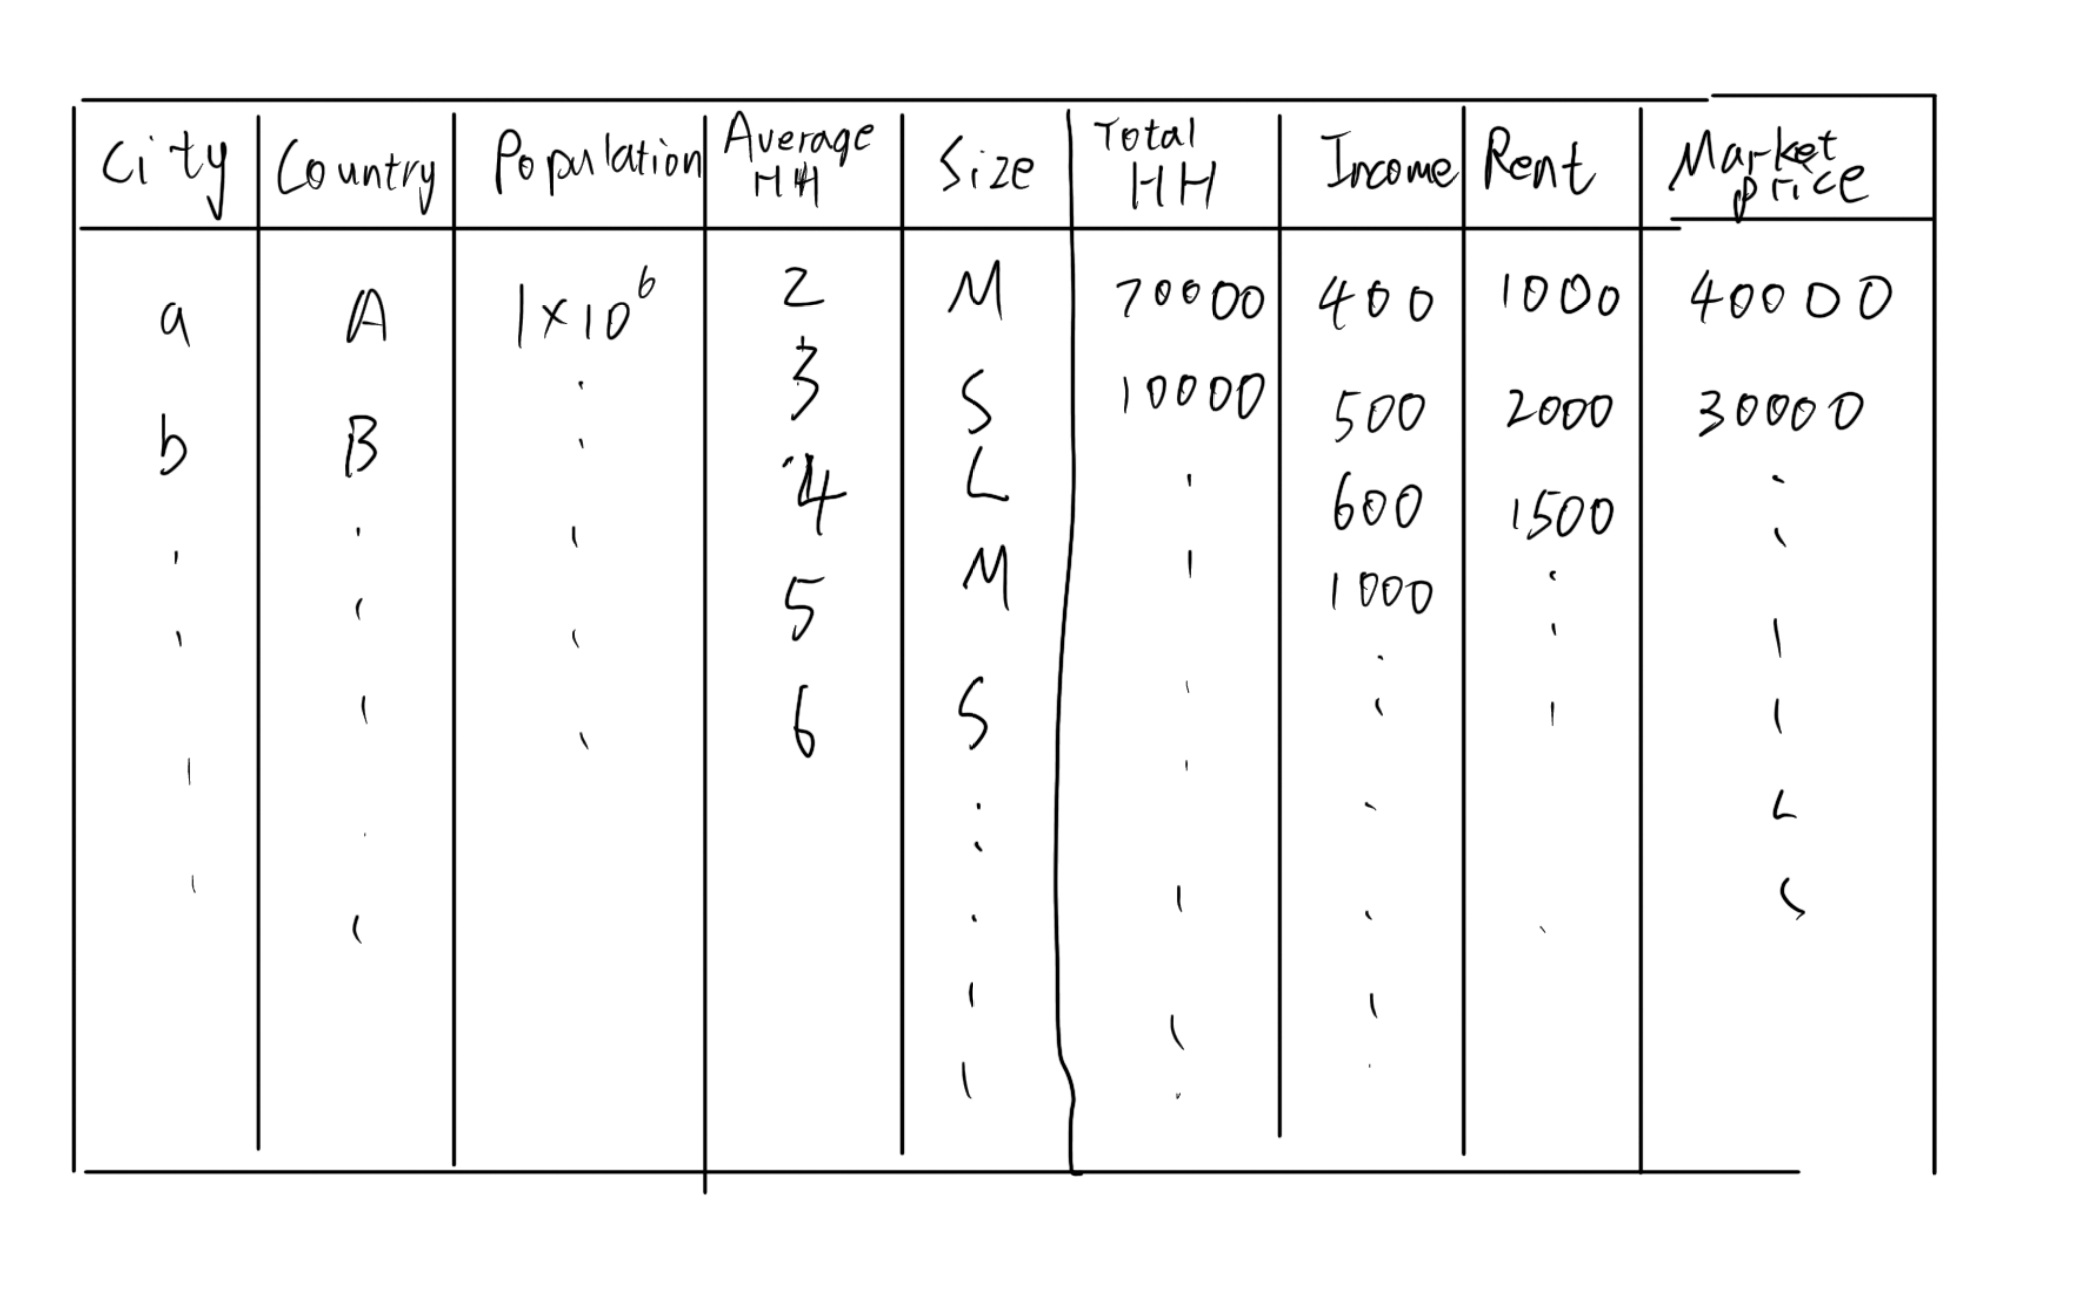 City Country Population Average HH Size Total HH Income Rent Market price
a A 1×10⁶ 2 M 70000 400 1000 40000
b B 3 S 10000 500 2000 30000
4 L 600 1500
5 M 1000
6 S